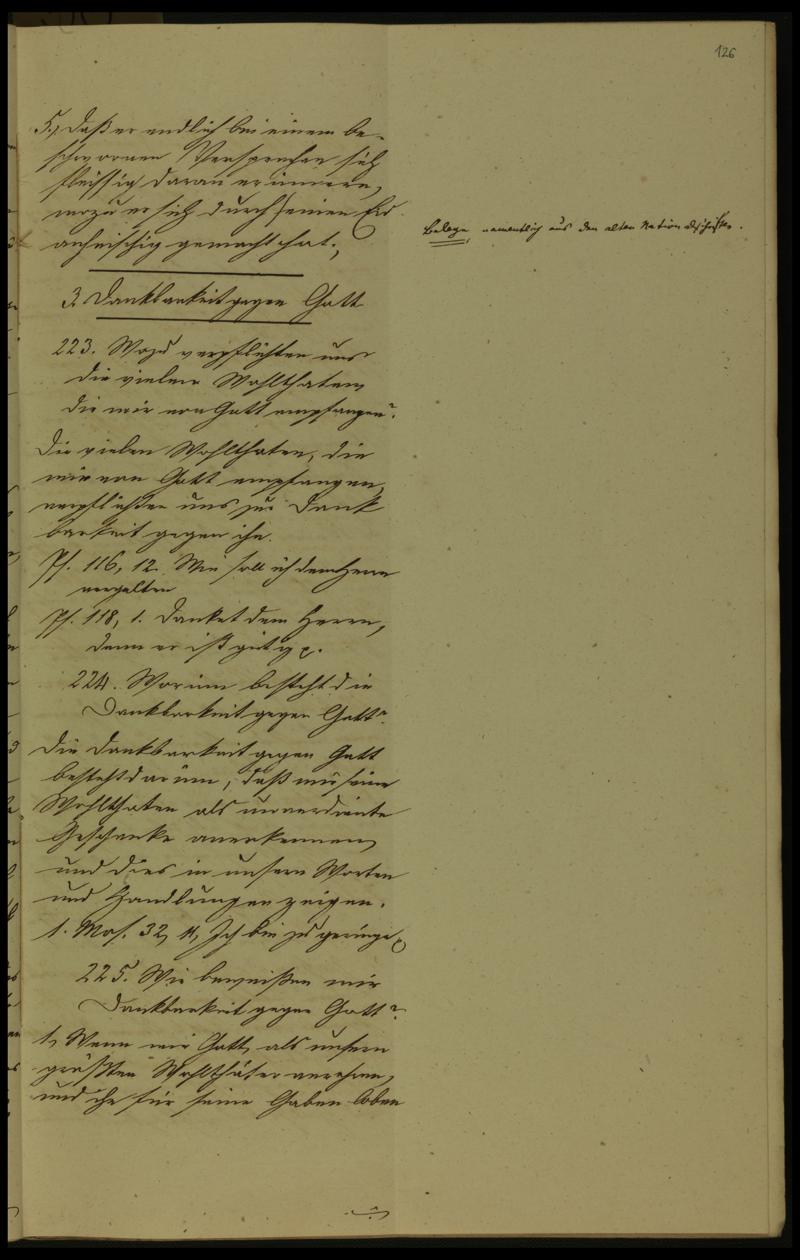 126
5., daß er endlich bei einem be-
schwornen Versprechen sich
fleissig daran erinnere,
wozu er sich durch seinen Eid
anheischig gemacht hat.
Belege, namentlich aus den alten
3. Dankbarkeit gegen Gott
223. Wozu verpflichten uns
die vielen Wohlthaten,
die wir von Gott empfangen?
Die vielen Wohlthaten, die
wir von Gott empfangen,
verpflichten uns zur Dank
barkeit gegen ihn.
Ps. 116, 12. Wie soll ich dem Herrn
vergelten
Ps. 118, 1. Danket dem Herrn,
denn er ist gütig
224. Worinn besteht die
Dankbarkeit gegen Gott?
Die Dankbarkeit gegen Gott
besteht darinn, daß wir seine
Wohlthaten als unverdiente
Geschenke anerkennen,
und dies in unsern Worten
und Handlungen zeigen.
1. Mos. 32, 11, Ich bin zu geringe
225. Wie beweißen wir
Dankbarkeit gegen Gott?
1, Wenn wir Gott, als unsern
größten Wohlthäter verehren,
und ihn für seine Gaben loben